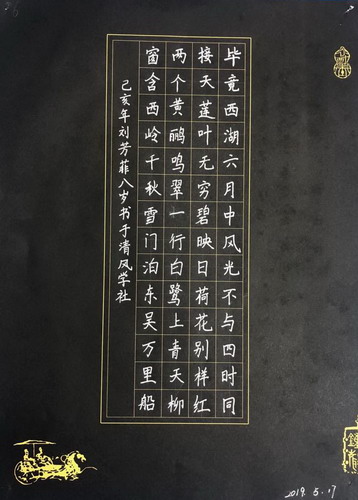 毕竟西湖六月中风光不与四时同
接天莲叶无穷碧映日荷花别样红
两个黄鹂鸣翠一行白鹭上青天柳
窗含西岭千秋雪门泊东吴万里船
己亥年刘芳菲八岁书于清风学社
2019.5.17